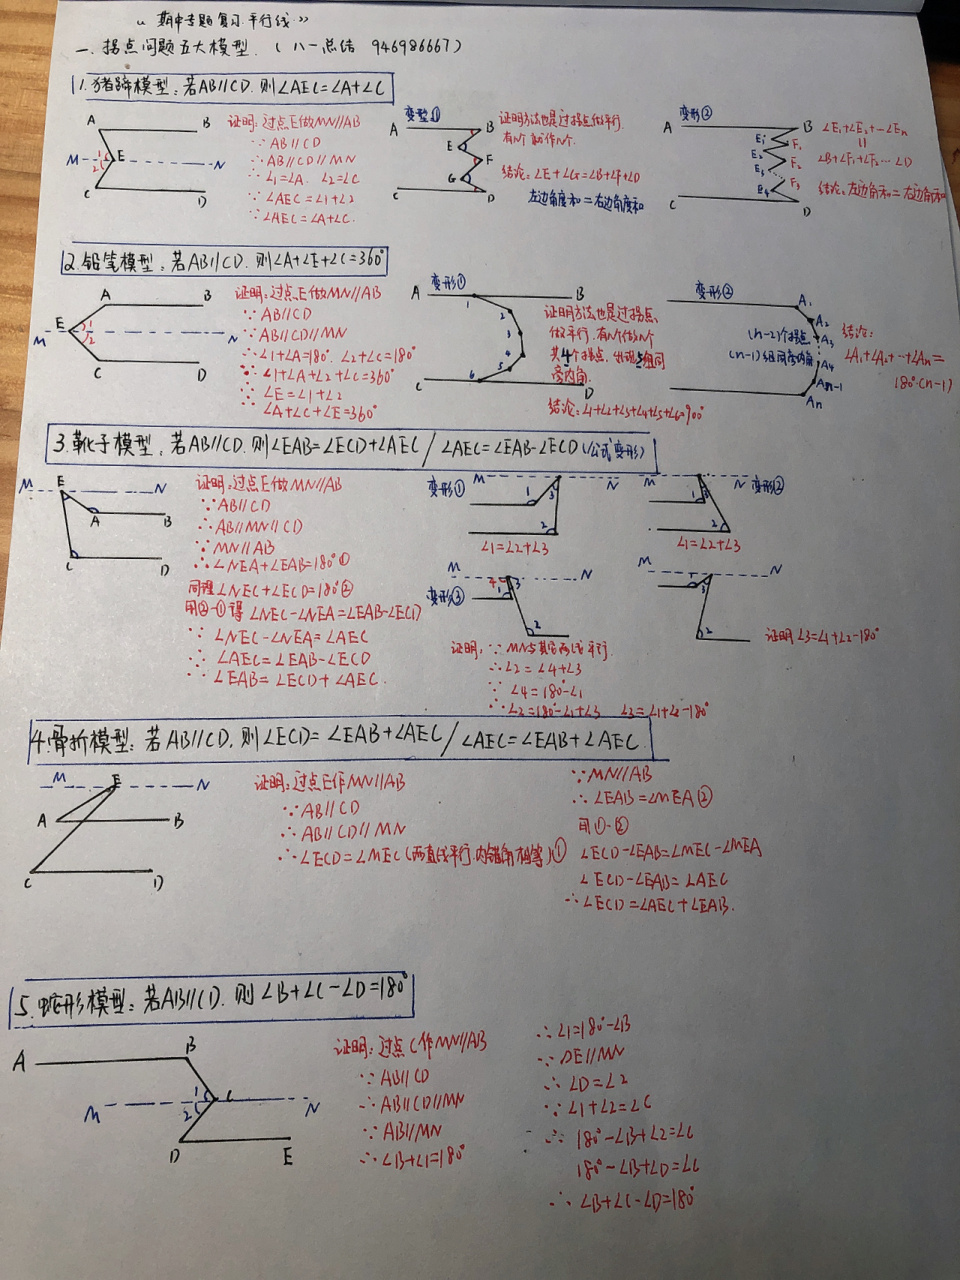 “期中专题复习.平行线”
一、拐点问题五大模型.(八一总结 946986667)
1.猪蹄模型:若AB//CD.则∠AEC=∠A+∠C
A B
M E N
1
2
C D
证明:过点E做MN//AB
∵AB//CD
∴AB//CD//MN
∴∠1=∠A. ∠2=∠C
∵∠AEC=∠1+∠2
∵∠AEC=∠A+∠C.
变型①
A B
E
F
G
C D
证明方法也是过拐点做平行.
有n个 就作n个.
结论:∠E+∠G=∠B+∠F+∠D
左边角度和=右边角度和
变形②
A B
E₁ F₁
E₂ F₂
E₃
E₄ F₃
C D
∠E₁+∠E₂+…∠En
=
∠B+∠F₁+∠F₂…∠D
结论:左边角和=右边角和
2.铅笔模型:若AB//CD.则∠A+∠E+∠C=360°
A B
E
M N
1
2
C D
证明:过点E做MN//AB
∵AB//CD
∴AB//CD//MN
∴∠1+∠A=180°. ∠2+∠C=180°
∴∠1+∠A+∠2+∠C=360°
∵∠E=∠1+∠2
∴∠A+∠C+∠E=360°
变形①
A B
1
2
3
4
5
6
C D
证明方法也是过拐点
做平行.有n个做n个
共4个拐点,出现5组同
旁内角.
结论:∠1+∠2+∠3+∠4+∠5+∠6=900°
变形②
A₁
A₂
A₃
A₄
An-1
An
(n-2)个拐点
(n-1)组同旁内角
结论:
∠A₁+∠A₂+…+∠An=
180°·(n-1)
3.靴子模型:若AB//CD.则∠EAB=∠ECD+∠AEC / ∠AEC=∠EAB-∠ECD(公式变形)
E
M N
A B
C D
证明:过点E做MN//AB
∵AB//CD
∴AB//MN//CD
∵MN//AB
∴∠NEA+∠EAB=180°①
同理∠NEC+∠ECD=180°②
用②-①得 ∠NEC-∠NEA=∠EAB-∠ECD
∵∠NEC-∠NEA=∠AEC
∴∠AEC=∠EAB-∠ECD
∴∠EAB=∠ECD+∠AEC.
变形①
M N
1 3
2
∠1=∠2+∠3
M N 变形②
1 3
2
∠1=∠2+∠3
M N
变形③
4 3
1
2
证明:∵MN与其它两线平行
∴∠2=∠4+∠3
∵∠4=180°-∠1
∴∠2=180°-∠1+∠3 ∠3=∠1+∠2-180°
M N
1 3
2
证明∠3=∠1+∠2-180°
4.骨折模型:若AB//CD.则∠ECD=∠EAB+∠AEC / ∠AEC=∠EAB+∠AEC
M E N
A B
C D
证明:过点E作MN//AB
∵AB//CD
∴AB//CD//MN
∴∠ECD=∠MEC(两直线平行.内错角相等)①
∵MN//AB
∴∠EAB=∠MEA②
用①-②
∠ECD-∠EAB=∠MEC-∠MEA
∠ECD-∠EAB=∠AEC
∴∠ECD=∠AEC+∠EAB.
5.蛇形模型:若AB//CD.则∠B+∠C-∠D=180°
A B
M 1 C N
2
D E
证明:过点C作MN//AB
∵AB//CD
∴AB//CD//MN
∵AB//MN
∴∠B+∠1=180°
∴∠1=180°-∠B
∵DE//MN
∴∠D=∠2
∵∠1+∠2=∠C
∴180°-∠B+∠2=∠C
180°-∠B+∠D=∠C
∴∠B+∠C-∠D=180°